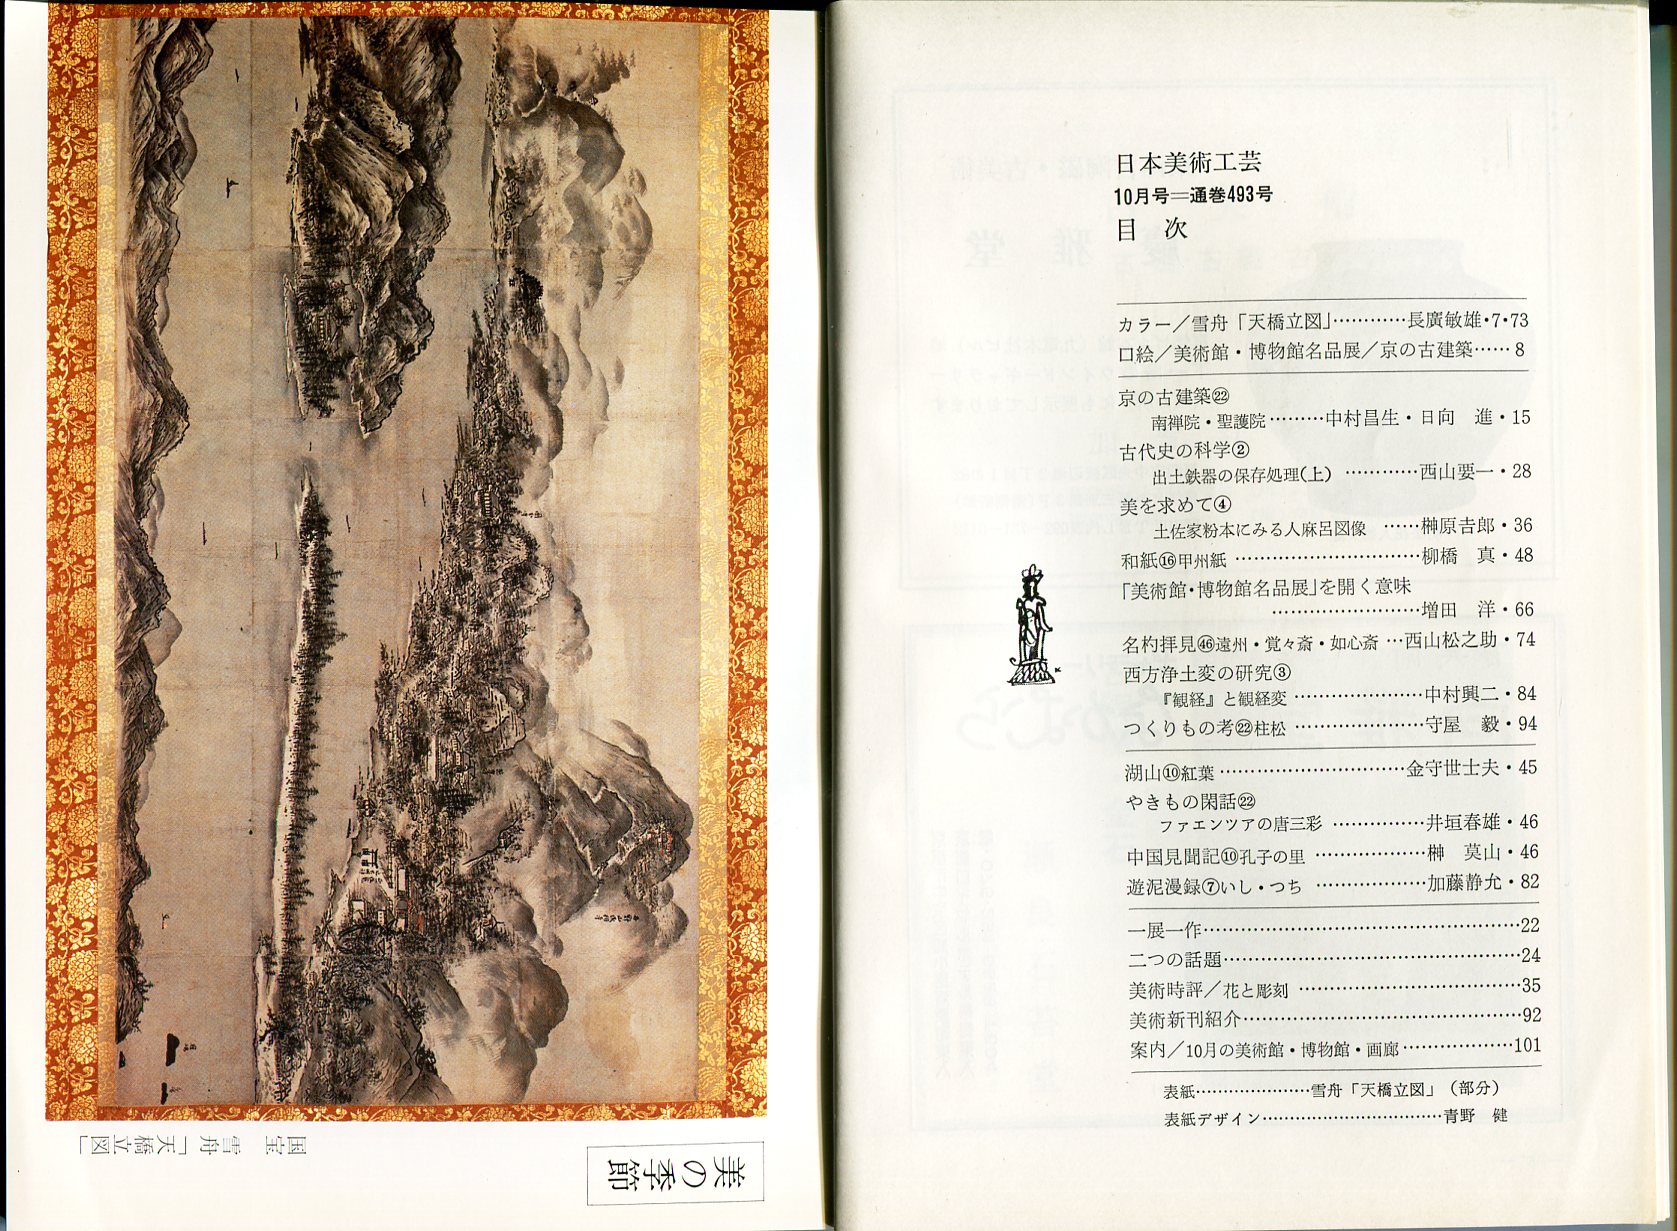 国宝　雪舟「天橋立図」
美の季節
日本美術工芸
10月号＝通巻493号
目　次
カラー／雪舟「天橋立図」…………長廣敏雄・7・73
口絵／美術館・博物館名品展／京の古建築……8
京の古建築㉒
南禅院・聖護院………中村昌生・日向　進・15
古代史の科学②
出土鉄器の保存処理(上) …………西山要一・28
美を求めて④
土佐家粉本にみる人麻呂図像 ……榊原吉郎・36
和紙⑯甲州紙 …………………………柳橋　真・48
「美術館・博物館名品展」を開く意味
……………………増田　洋・66
名杓拝見㊻遠州・覚々斎・如心斎 …西山松之助・74
西方浄土変の研究③
『観経』と観経変 …………………中村興二・84
つくりもの考㉒柱松 …………………守屋　毅・94
湖山⑩紅葉 …………………………金守世士夫・45
やきもの閑話㉒
ファエンツアの唐三彩 ……………井垣春雄・46
中国見聞記⑩孔子の里 ………………榊　莫山・46
遊泥漫録⑦いし・つち ………………加藤静允・82
一展一作……………………………………………22
二つの話題…………………………………………24
美術時評／花と彫刻 ………………………………35
美術新刊紹介………………………………………92
案内／10月の美術館・博物館・画廊………………101
表紙…………………雪舟「天橋立図」（部分）
表紙デザイン…………………………青野　健